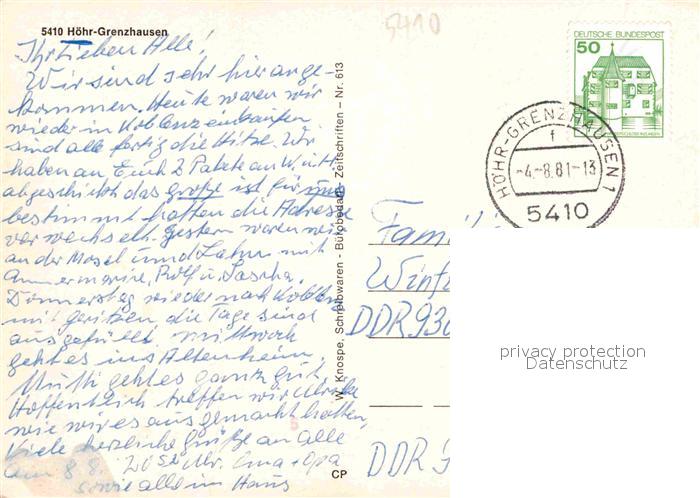 5410 Höhr-Grenzhausen
5410
DEUTSCHE BUNDESPOST
50
HÖHR-GRENZHAUSEN 1
f
-4.-8.81-13
5410
Ihr lieben Alle!
Wir sind sehr hier ange-
kommen. Heute waren wir
wieder in Koblenz einkaufen
sind alle fertig die Hitze. Wir
haben an Euch 2 Pakete an
abgeschickt das große ist für
bestimmt hatten die Adresse
verwechselt. Gestern waren wir
an der Mosel und Lahn mit
Annemarie, Rolf u. Sascha.
Donnerstag wieder nach Koblenz
mit die Tage sind
ausgefüllt. Mittwoch
geht es ins Altenheim.
Mutti geht es ganz gut.
Hoffentlich treffen wir
wie wir es ausgemacht hatten,
Viele herzliche Grüße an alle
am 8.8. Oma + Opa
sowie alle im Haus
W. Knospe, Schreibwaren - Bürobedarf - Zeitschriften – Nr. 613
CP
Famili
Winf
DDR 930
DDR 9
privacy protection
Datenschutz